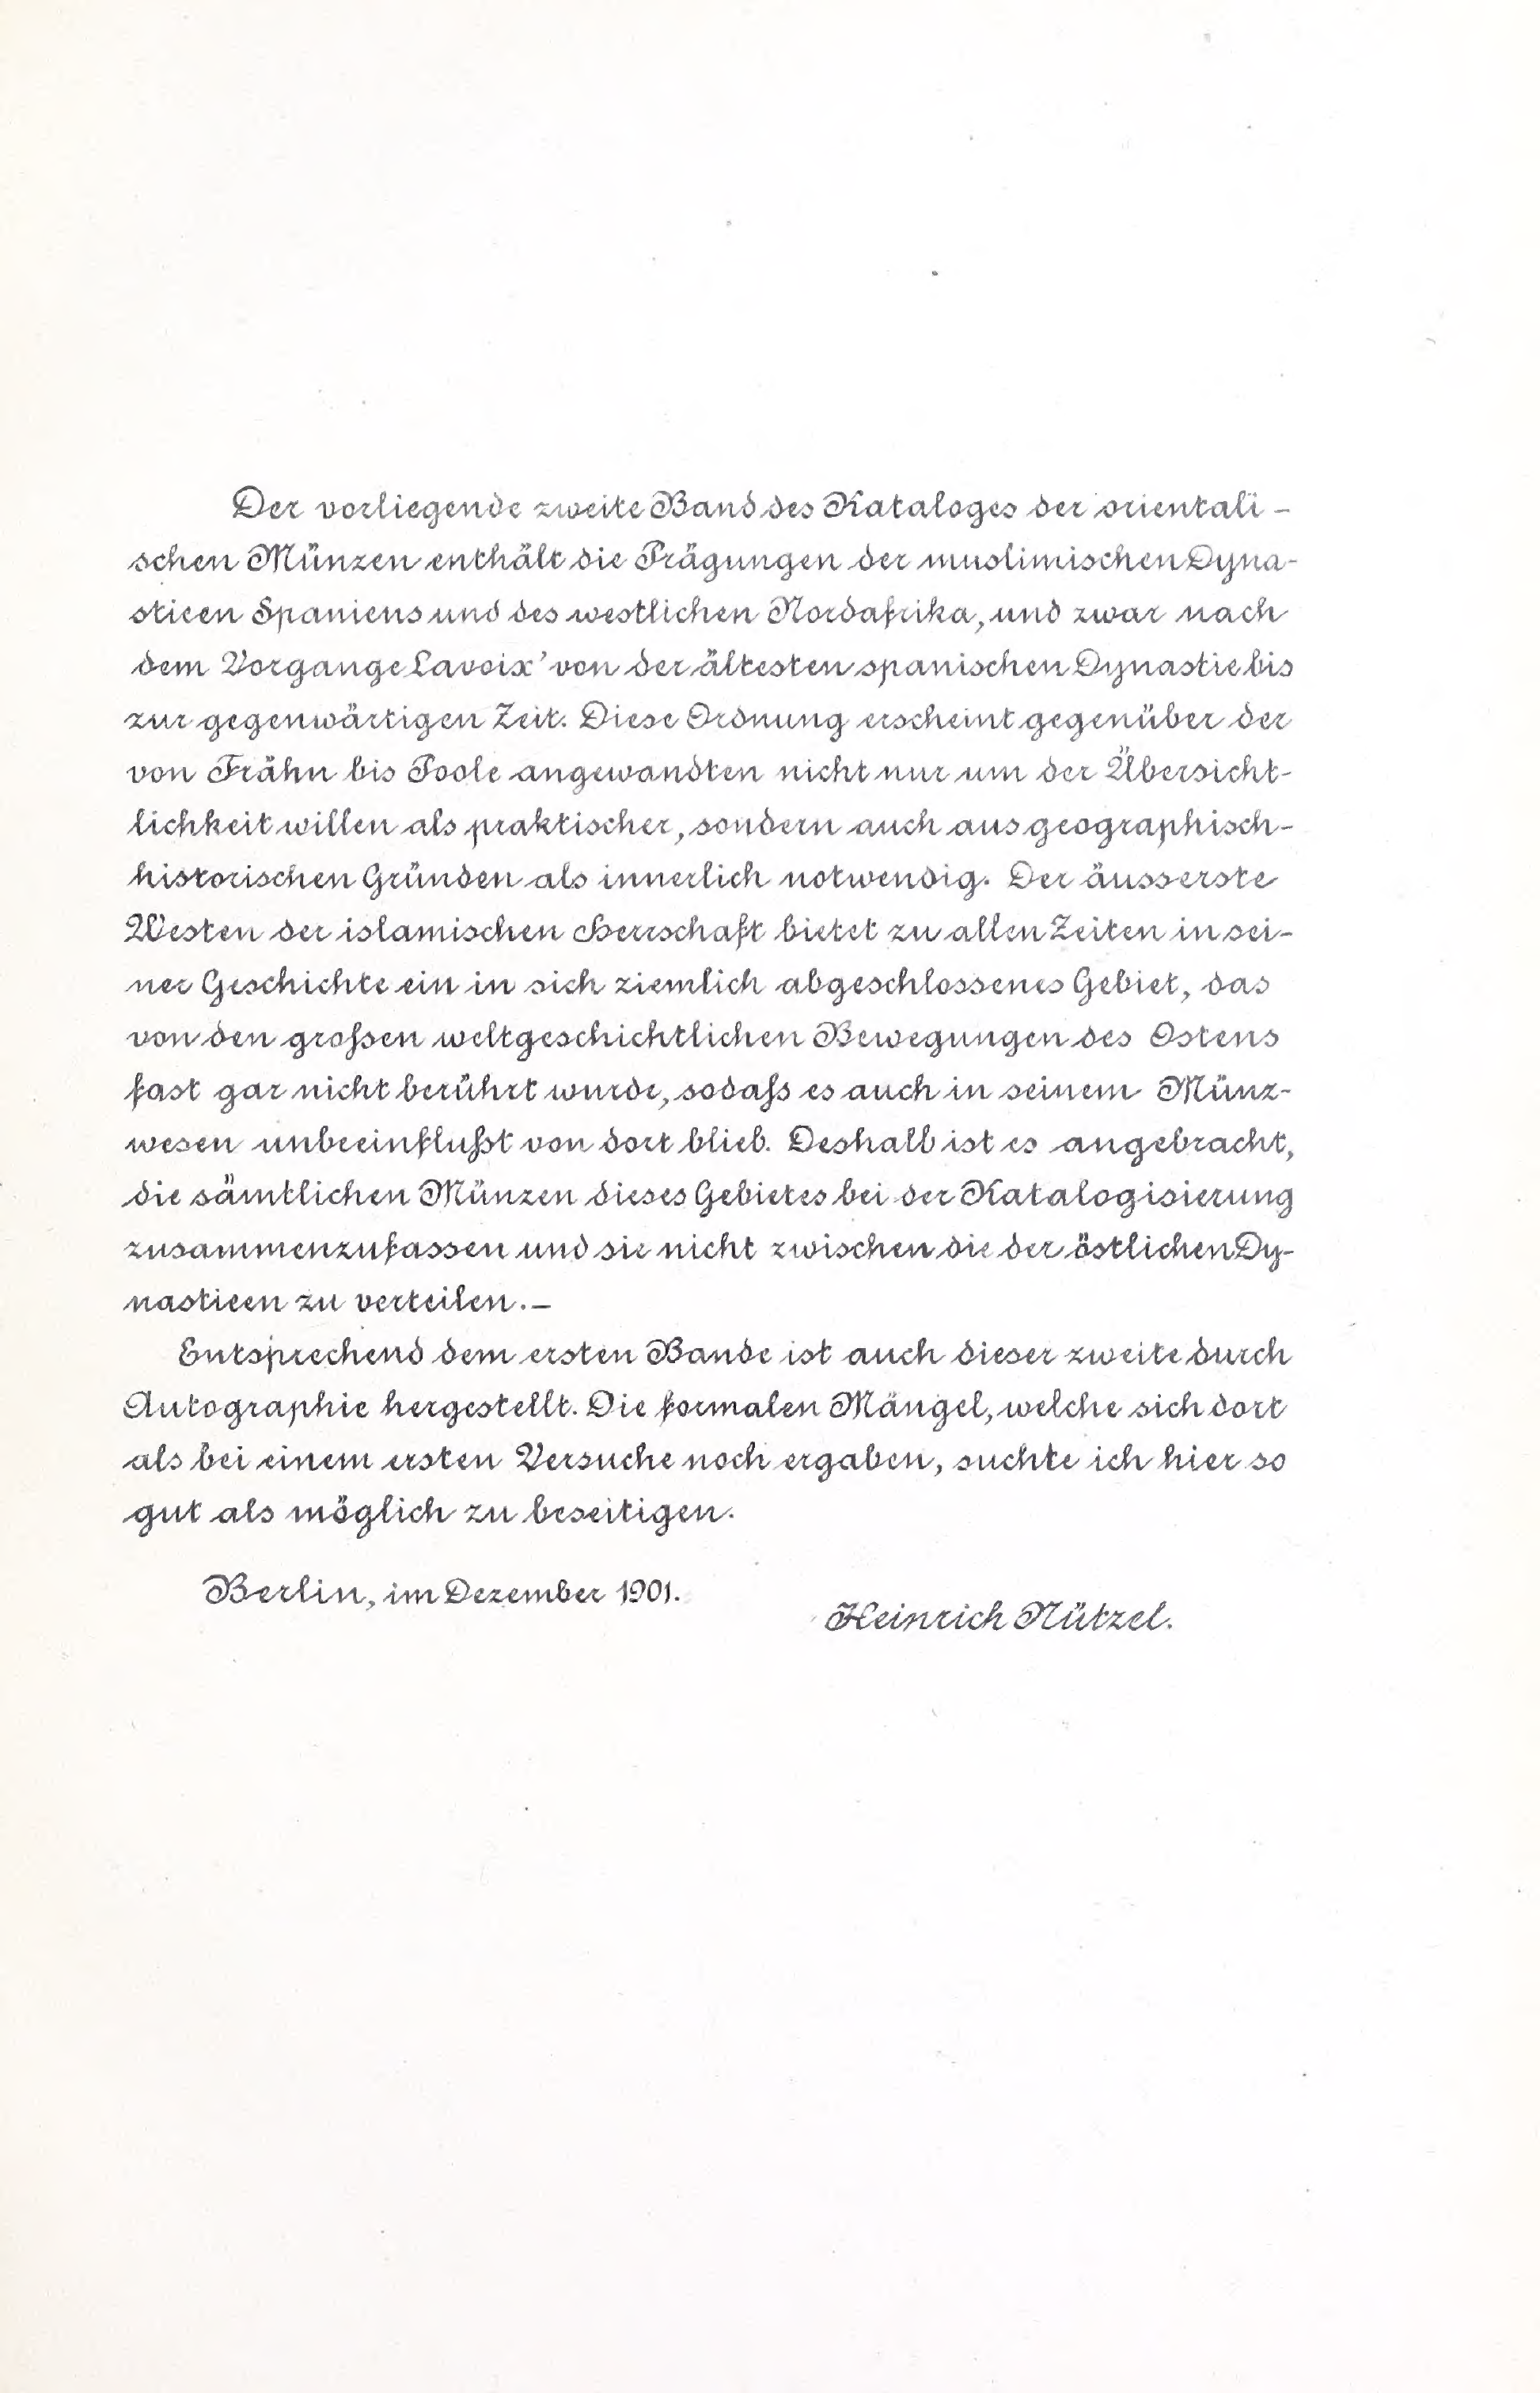 Der vorliegende zweite Band des Kataloges der orientali-
schen Münzen enthält die Prägungen der muslimischen Dyna-
stieen Spaniens und des westlichen Nordafrika, und zwar nach
dem Vorgange Lavoix' von der ältesten spanischen Dynastie bis
zur gegenwärtigen Zeit. Diese Ordnung erscheint gegenüber der
von Frähn bis Poole angewandten nicht nur um der Übersicht-
lichkeit willen als praktischer, sondern auch aus geographisch-
historischen Gründen als innerlich notwendig. Der äusserste
Westen der islamischen Herrschaft bietet zu allen Zeiten in sei-
ner Geschichte ein in sich ziemlich abgeschlossenes Gebiet, das
von den großen weltgeschichtlichen Bewegungen des Ostens
fast gar nicht berührt wurde, sodaß es auch in seinem Münz-
wesen unbeeinflußt von dort blieb. Deshalb ist es angebracht,
die sämtlichen Münzen dieses Gebietes bei der Katalogisierung
zusammenzufassen und sie nicht zwischen die der östlichen Dy-
nastieen zu verteilen.—
Entsprechend dem ersten Bande ist auch dieser zweite durch
Autographie hergestellt. Die formalen Mängel, welche sich dort
als bei einem ersten Versuche noch ergaben, suchte ich hier so
gut als möglich zu beseitigen.
Berlin, im Dezember 1901.
Heinrich Nützel.